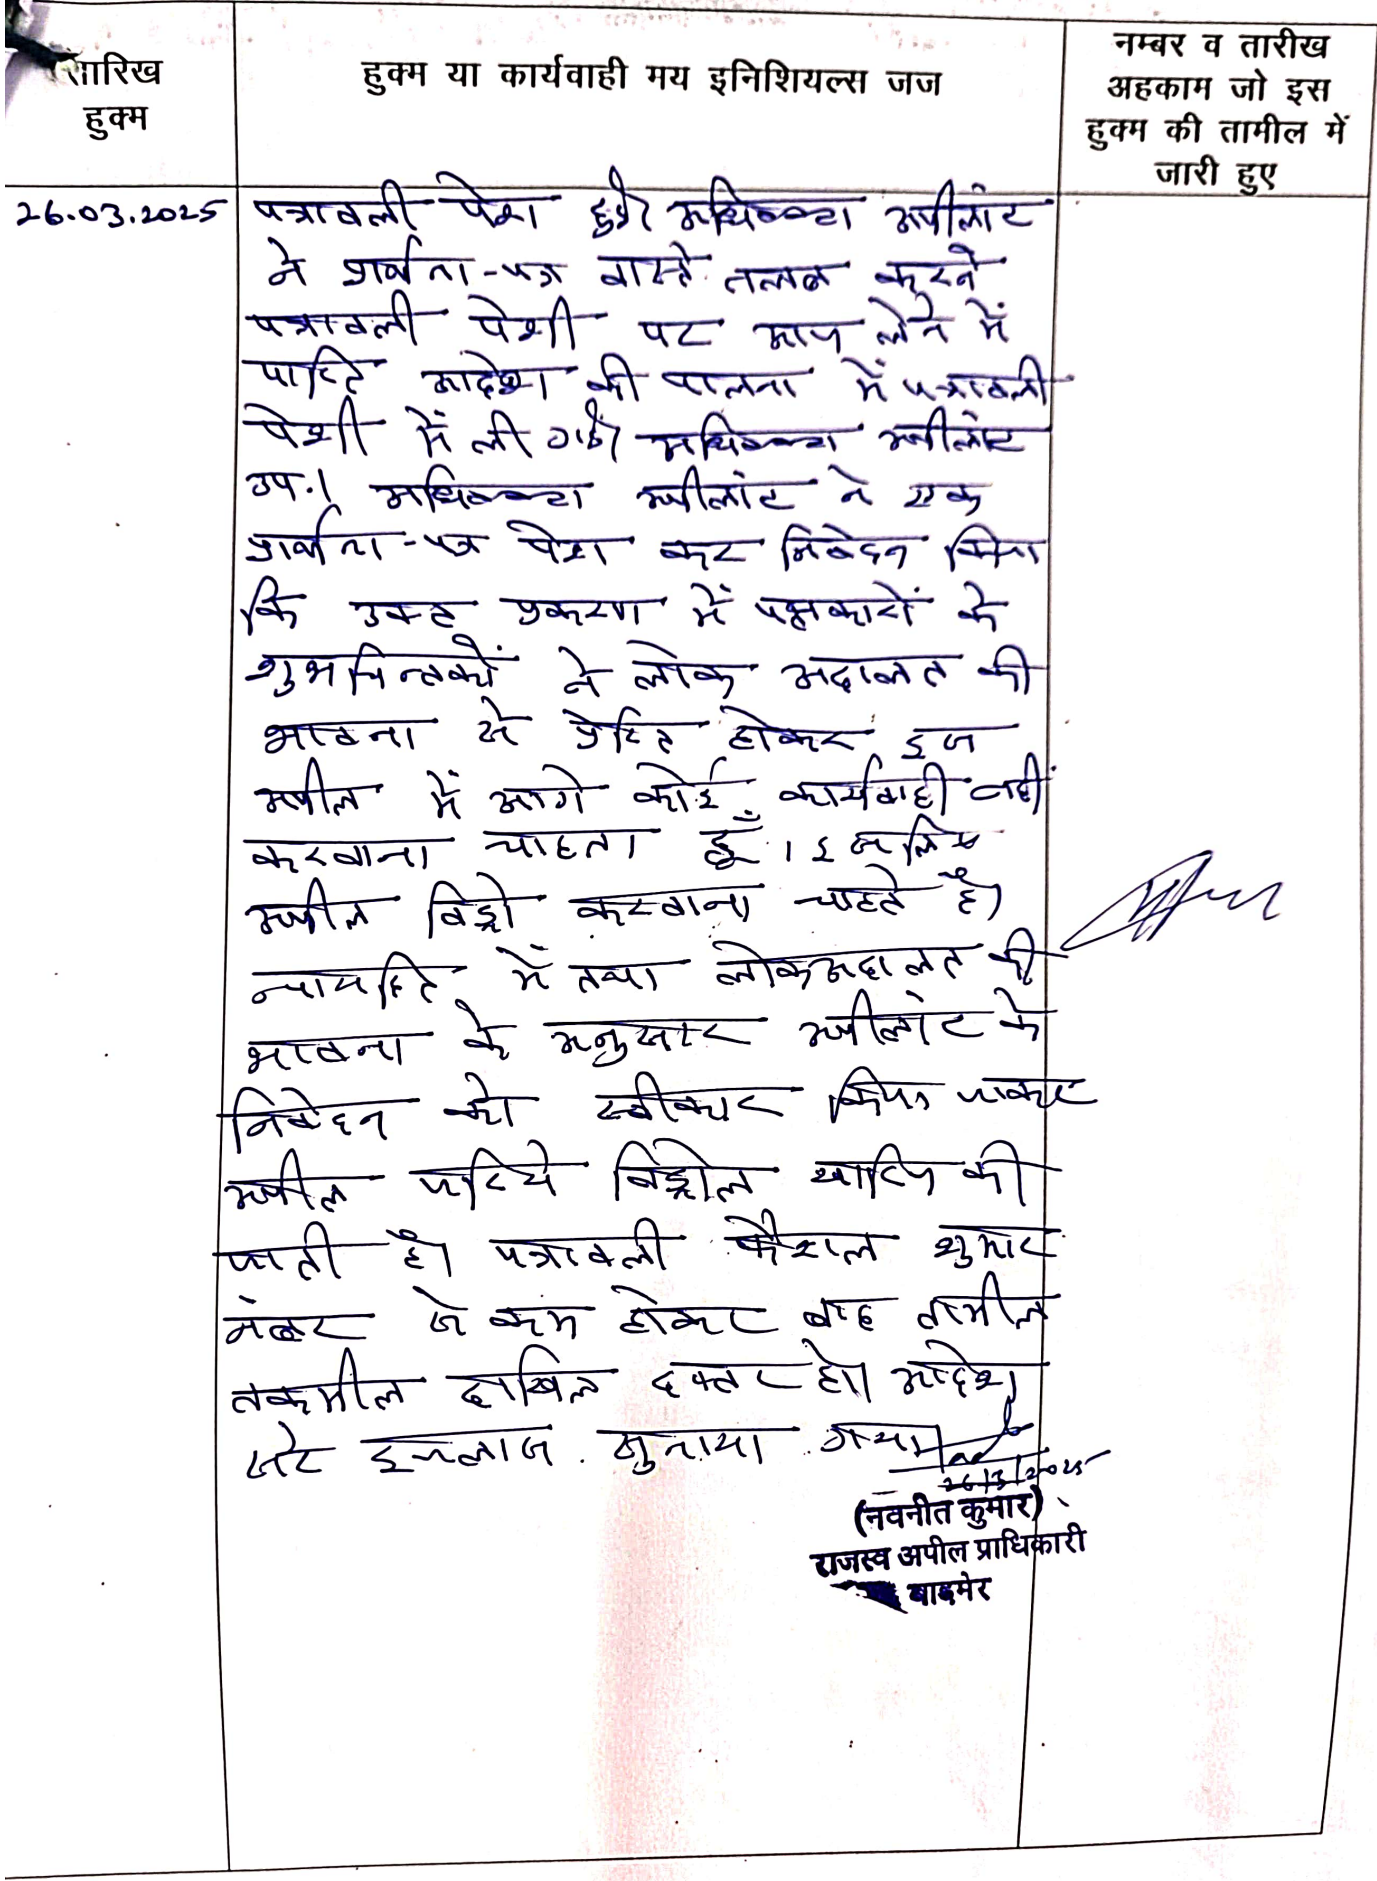 तारिख
हुक्म
हुक्म या कार्यवाही मय इनिशियल्स जज
नम्बर व तारीख
अहकाम जो इस
हुक्म की तामील में
जारी हुए
26.03.2025
पत्रावली पेश हुई। अधिवक्ता अपीलांट
ने प्रार्थना-पत्र वास्ते तलब करने
पत्रावली पेशी पर आज लेने में
पारित आदेश की पालना में पत्रावली
पेशी में ली गई। अधिवक्ता अपीलांट
उप.। अधिवक्ता अपीलांट ने एक
प्रार्थना-पत्र पेश कर निवेदन किया
कि उक्त प्रकरण में पक्षकारों के
शुभचिन्तकों ने लोक अदालत की
भावना से प्रेरित होकर इस
अपील में आगे कोई कार्यवाही नहीं
करवाना चाहता हूँ। इसलिए
अपील विड्रो करवाना चाहते है।
न्यायहित में तथा लोकअदालत की
भावना के अनुसार अपीलांट के
निवेदन को स्वीकार किया जाकर
अपील जरिये विड्रोल खारिज की
जाती है। पत्रावली फैशल शुमार
नंबर से कम होकर बाद तामील
तकमील दाखिल दफ्तर हो। आदेश
सरे इजलास सुनाया गया।
26/3/2025
(नवनीत कुमार)
राजस्व अपील प्राधिकारी
बाड़मेर